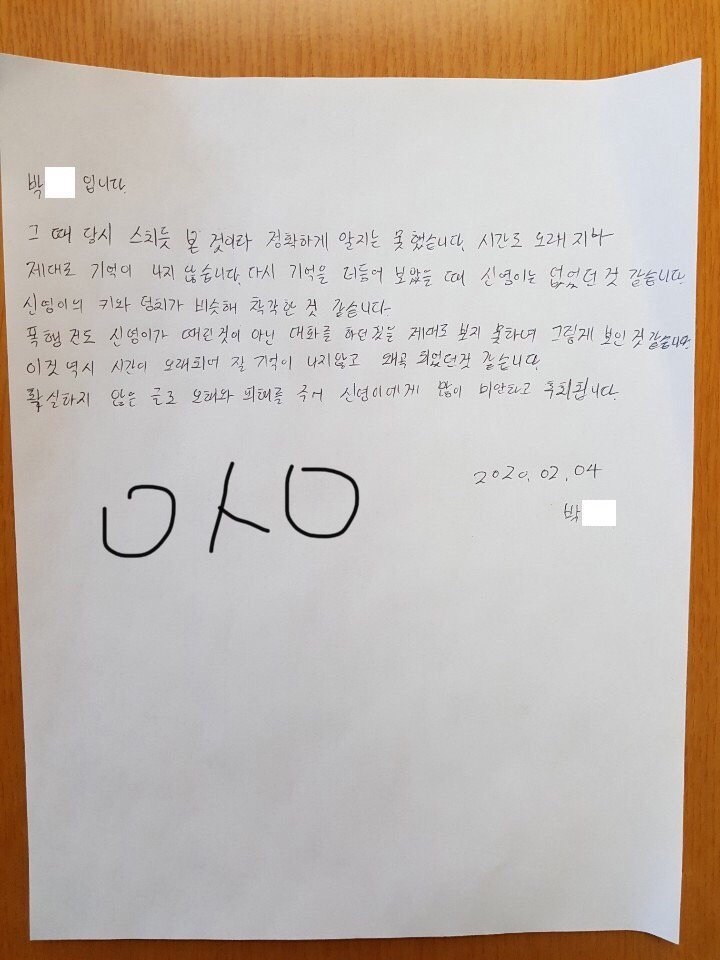 박 입니다.
그 때 당시 스치듯 본 것이라 정확하게 알지는 못했습니다. 시간도 오래 지나
제대로 기억이 나지 않습니다. 다시 기억을 더듬어 보았을 때 신영이는 없었던 것 같습니다.
신영이의 키와 덩치가 비슷해 착각한 것 같습니다.
폭행 건도 신영이가 때린것이 아닌 대화를 하던것을 제대로 보지 못하여 그렇게 보인 것 같습니다.
이것 역시 시간이 오래되어 잘 기억이 나지않고 왜곡 되었던것 같습니다.
확실하지 않은 글로 오해와 피해를 주어 신영이에게 많이 미안하고 후회됩니다.
2020.02.04
박
ㅇㅅㅇ